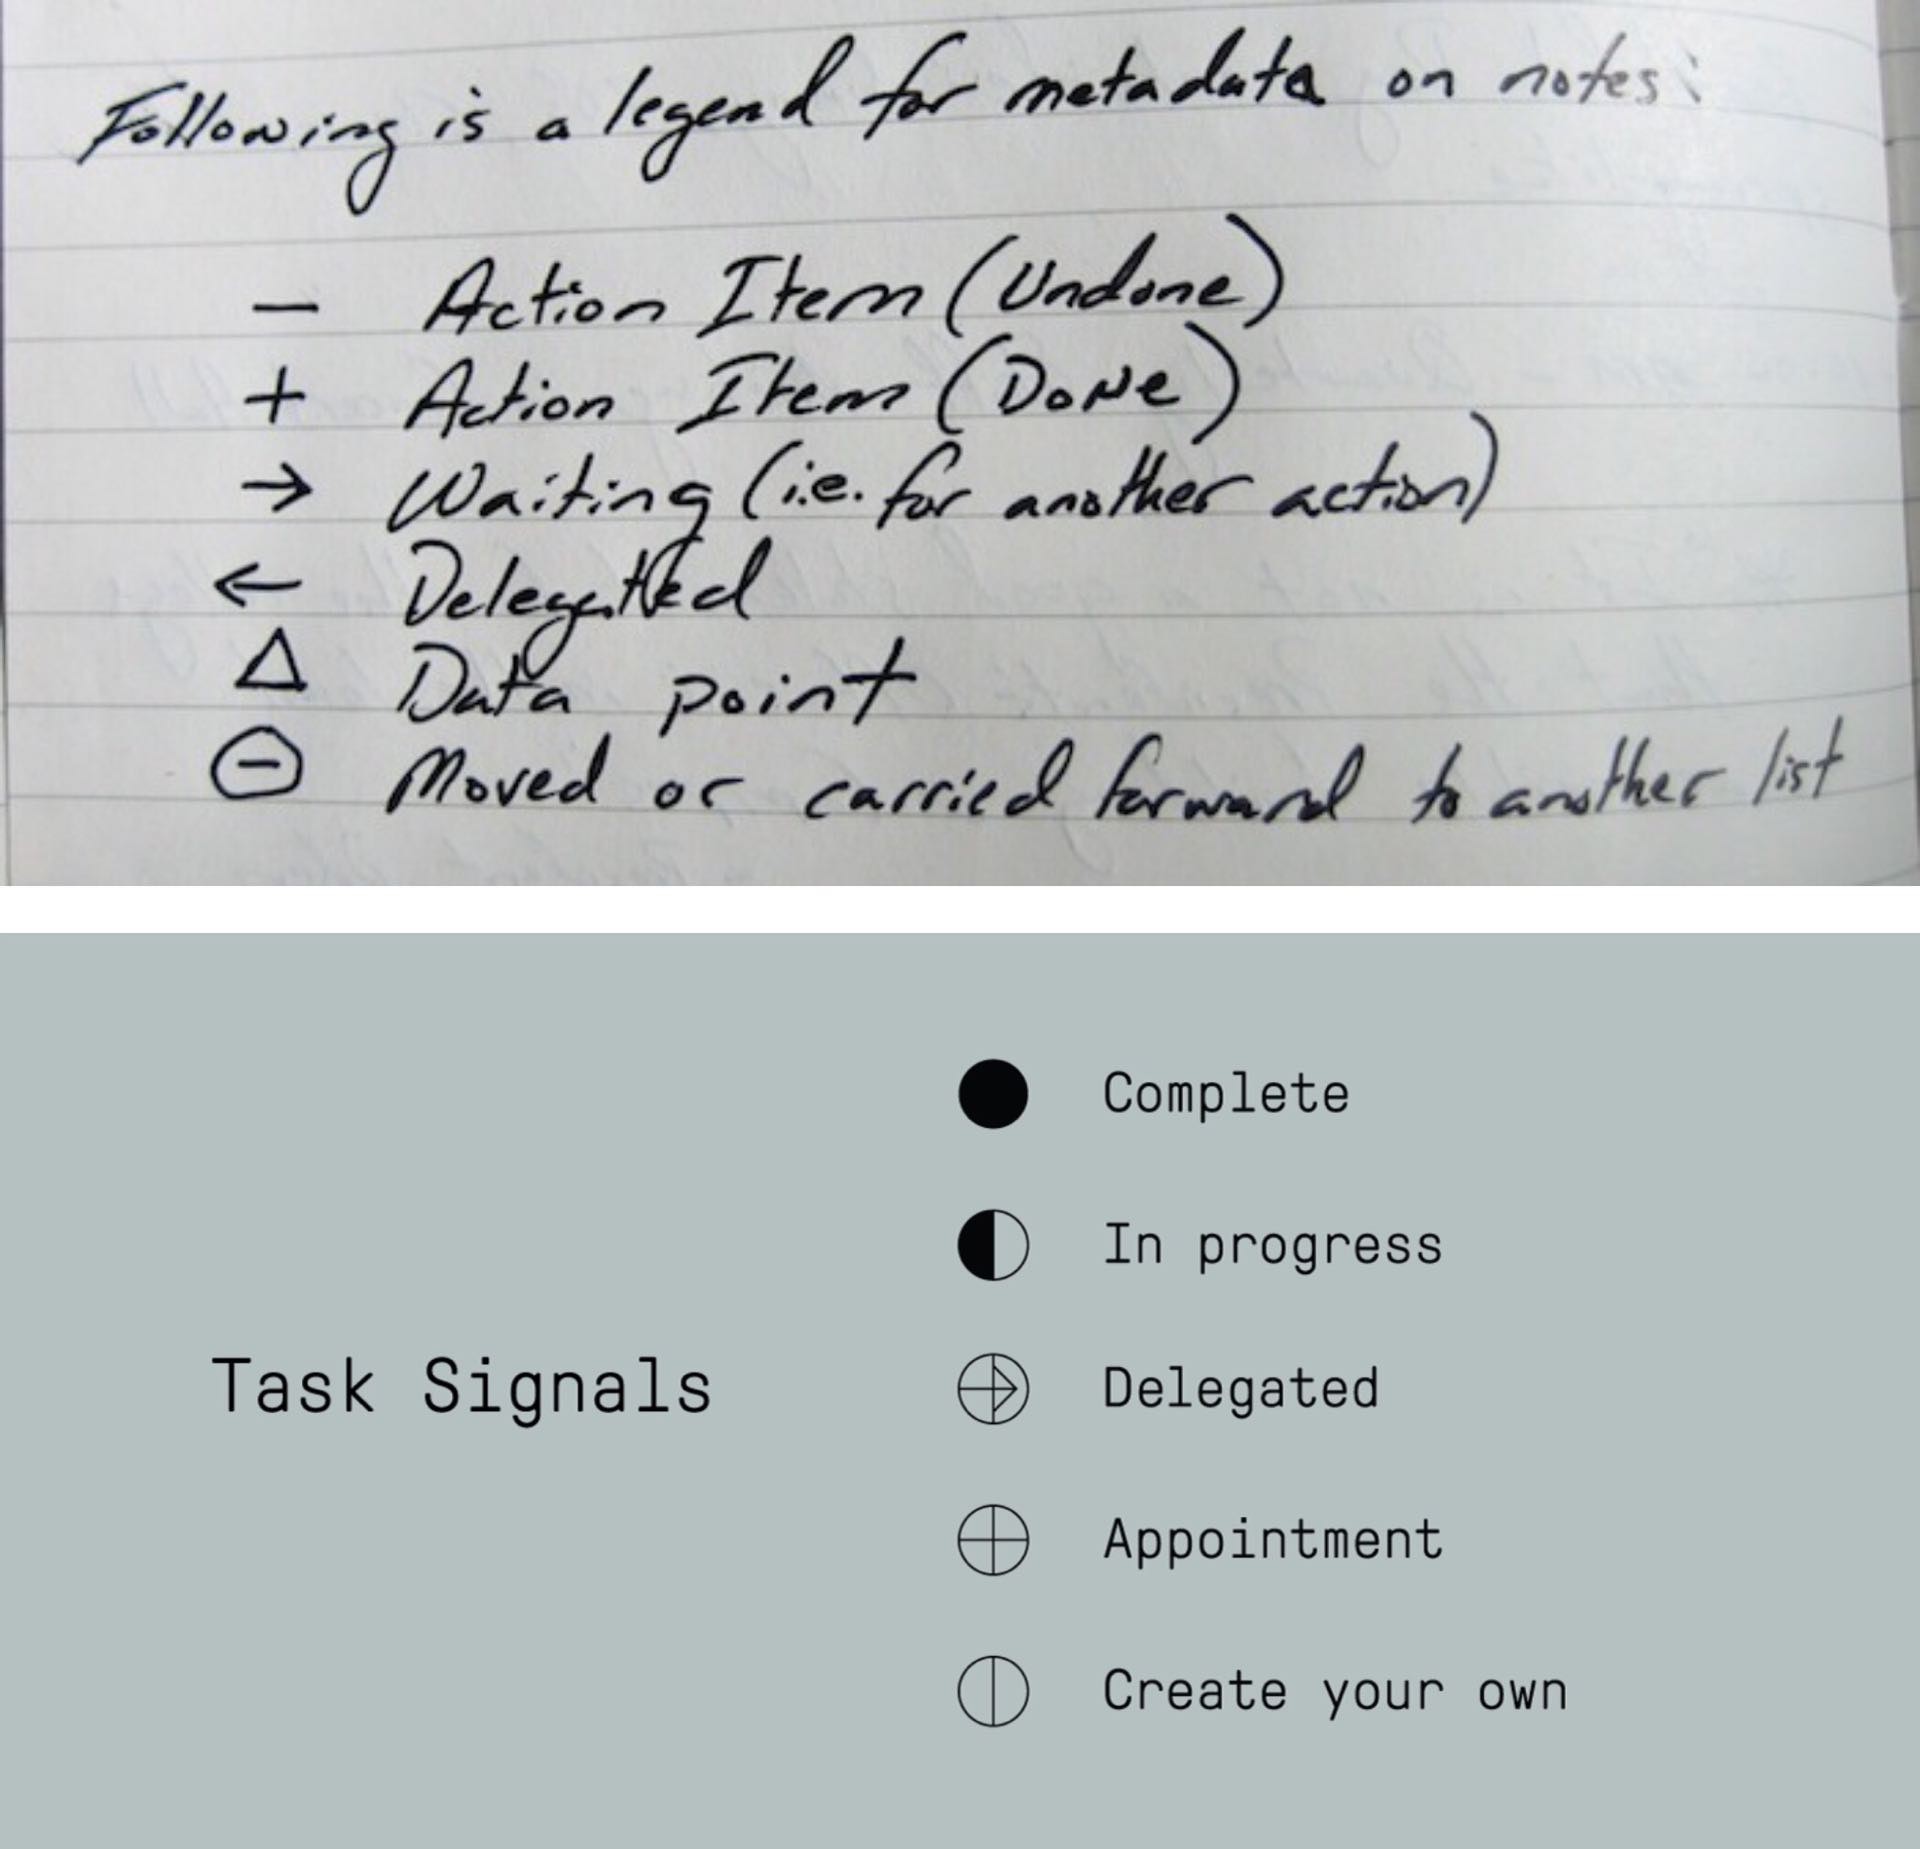 Following is a legend for metadata on notes:
— Action Item (Undone)
+ Action Item (Done)
→ Waiting (i.e. for another action)
← Delegated
△ Data point
⊖ Moved or carried forward to another list
● Complete
◐ In progress
Task Signals
Delegated
⊕ Appointment
⦶ Create your own